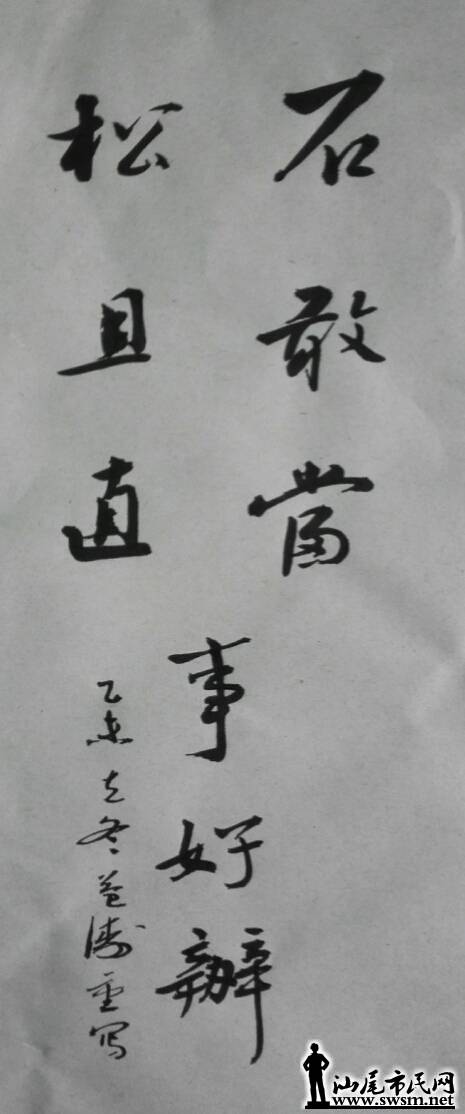 石敢當
事好辦
松且直
乙未立冬
写
汕尾市民网
www.swsm.net